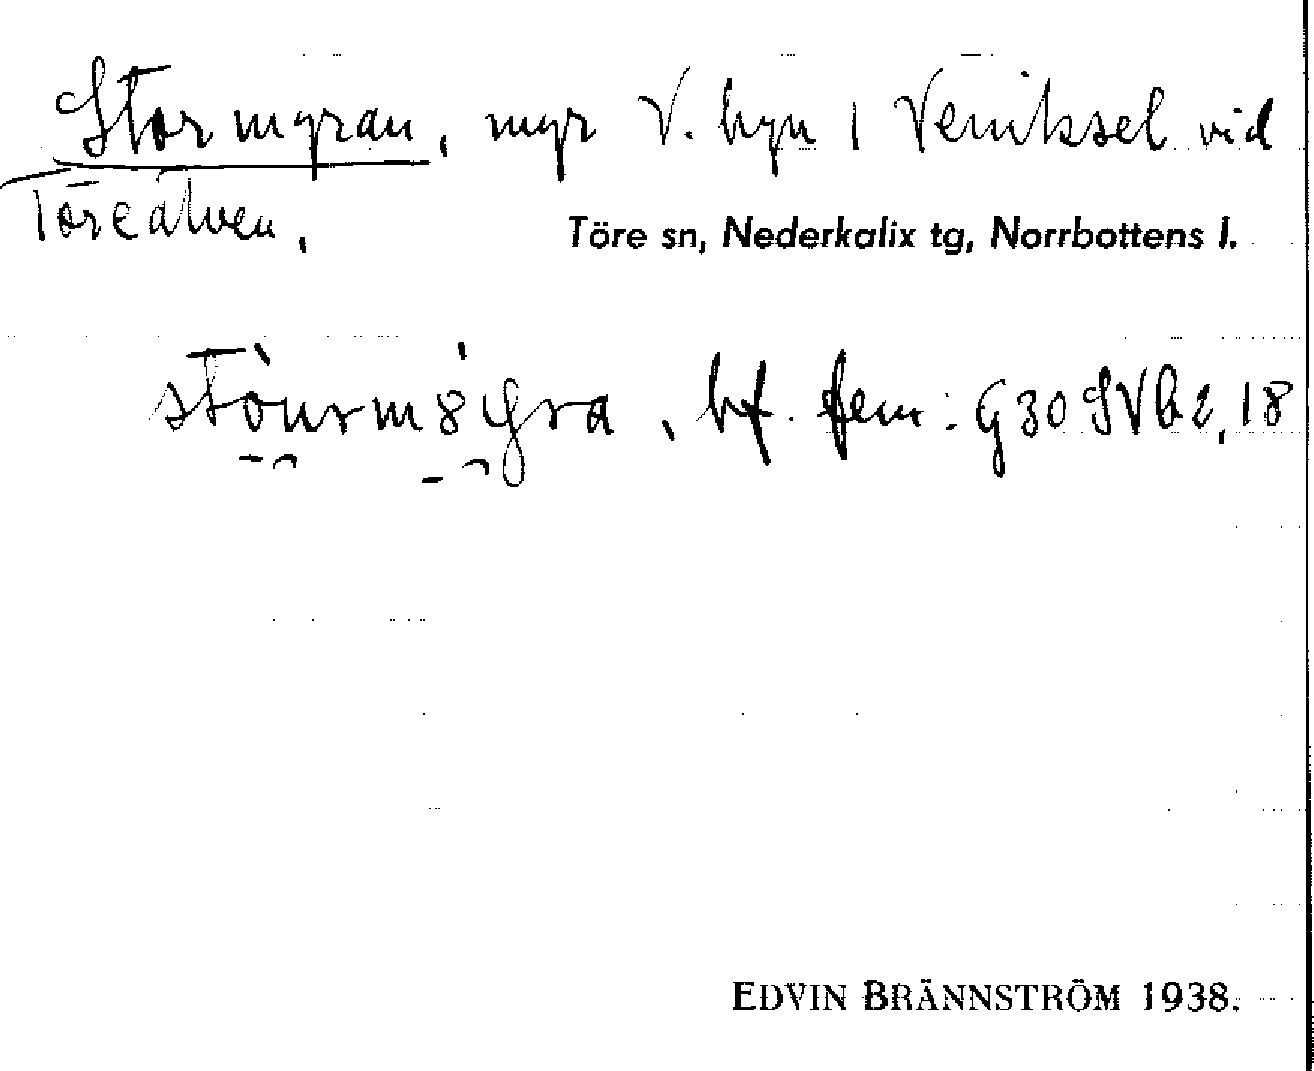 Stormyran, myr V. byn i Veniksel vid
Töreälven.
Töre sn, Nederkalix tg, Norrbottens l.
bf. fem: G30 SVb2, 18
EDVIN BRÄNNSTRÖM 1938.